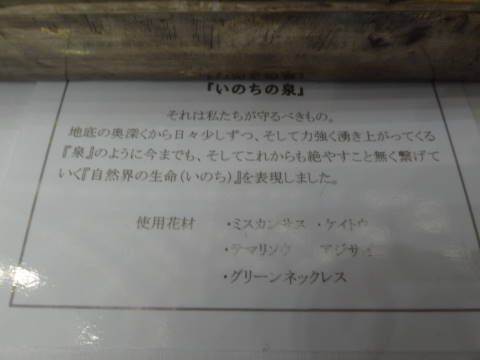 『いのちの泉』
それは私たちが守るべきもの。
地底の奥深くから日々少しずつ、そして力強く湧き上がってくる
『泉』のように今までも、そしてこれからも絶やすこと無く繋げて
いく『自然界の生命(いのち)』を表現しました。
使用花材 ・ミスカンサス ・ケイトウ
・テマリソウ アジサイ
・グリーンネックレス